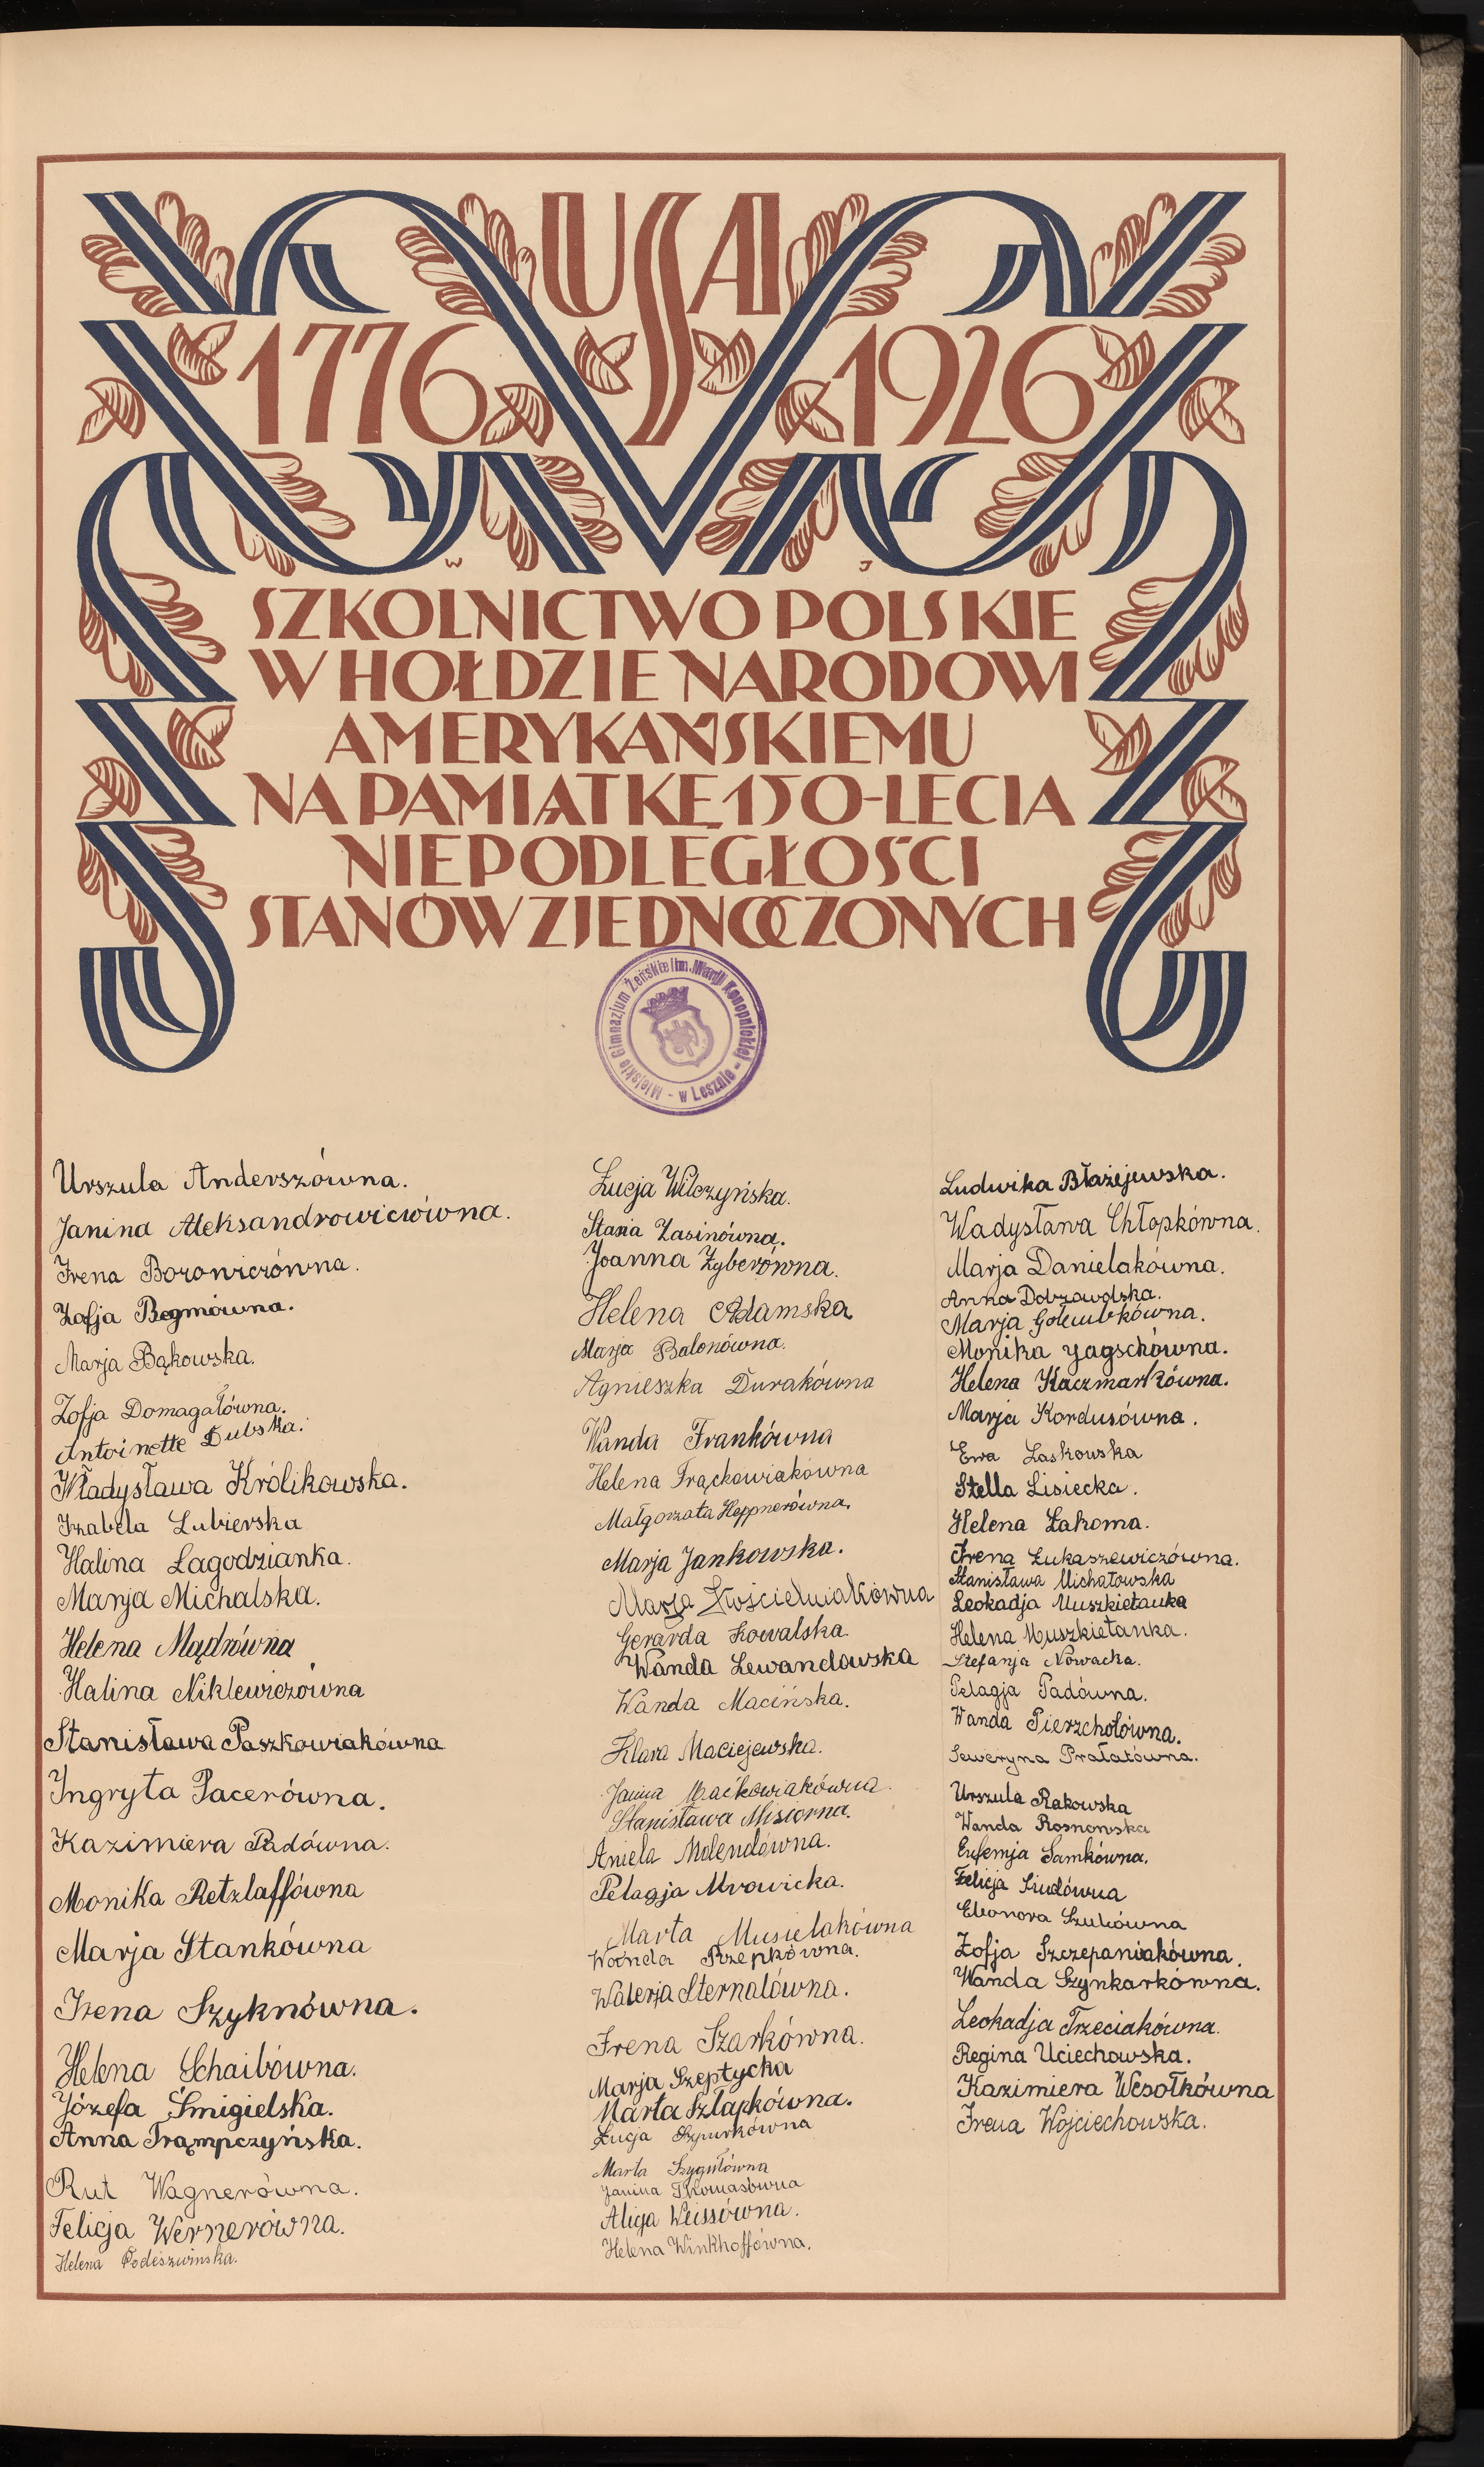 USA
1776 1926
W J
SZKOLNICTWO POLSKIE
W HOŁDZIE NARODOWI
AMERYKAŃSKIEMU
NA PAMIĄTKĘ 150-LECIA
NIEPODLEGŁOŚCI
STANÓW ZJEDNOCZONYCH
Miejskie Gimnazjum Żeńskie im. Marji Konopnickiej - w Lesznie -
Urszula Anderszówna.
Janina Aleksandrowiczówna.
Irena Borowiczówna.
Zofja Begmówna.
Marja Bąkowska.
Zofja Domagałówna.
Antoinette Dubska.
Władysława Królikowska.
Izabela Lubierska
Halina Łagodzianka.
Marja Michalska.
Helena Mądrówna
Halina Niklewiczówna
Stanisława Paszkowiakówna
Ingryta Pacerówna.
Kazimiera Padówna.
Monika Retzlaffówna
Marja Stankówna
Irena Szyknówna.
Helena Schaibówna.
Józefa Śmigielska.
Anna Trąmpczyńska.
Rut Wagnerówna.
Felicja Wernerówna.
Helena Podeszwinska.
Łucja Wilczyńska.
Stasia Zasinówna.
Joanna Zyberówna.
Helena Adamska
Marja Balonówna.
Agnieszka Durakówna
Wanda Frankówna
Helena Frąckowiakówna
Małgorzata Heppnerówna.
Marja Jankowska.
Marja Kościelniakówna
Gerarda Kowalska.
Wanda Lewandowska
Wanda Macińska.
Klara Maciejewska.
Janina Maćkowiakówna.
Stanisława Misiorna.
Aniela Molendówna.
Pelagja Mrowicka.
Marta Musielakówna
Wanda Rzepkówna.
Walerja Sternalówna.
Irena Szarkówna.
Marja Szeptycka
Marta Szłapkówna.
Łucja Szpurkówna
Marta Szygułówna
Janina Thomasówna
Alicja Weissówna.
Helena Winkhoffówna.
Ludwika Błażejewska.
Wadysława Chłopkówna.
Marja Danielakówna.
Anna Dobrawolska.
Marja Golembkówna.
Monika Jagschówna.
Helena Kaczmarkówna.
Marja Kordusówna.
Ewa Laskowska
Stella Lisiecka.
Helena Łakoma.
Irena Łukaszewiczówna.
Stanisława Michałowska
Leokadja Muszkietanka
Helena Muszkietanka.
Stefanja Nowacka.
Pelagja Padówna.
Wanda Pierzchołówna.
Seweryna Prałatówna.
Urszula Rakowska
Wanda Rosnowska
Eufemja Samkówna.
Felicja Siudówna
Eleonora Szulcówna
Zofja Szczepaniakówna.
Wanda Szynkarkówna.
Leokadja Trzeciakówna.
Regina Uciechowska.
Kazimiera Wesołkówna
Irena Wojciechowska.